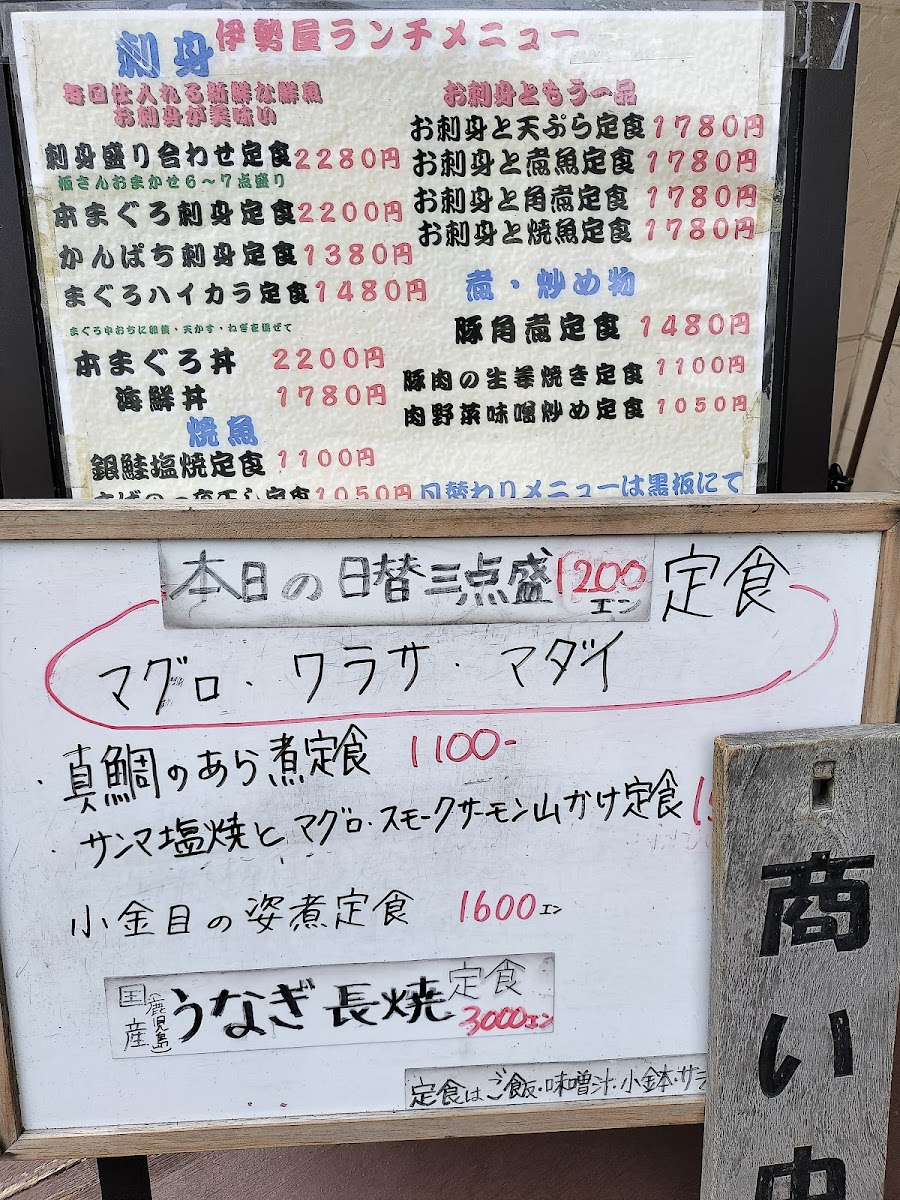 伊勢屋ランチメニュー
刺身
毎日仕入れる新鮮な鮮魚
お刺身が美味い
刺身盛り合わせ定食2280円
板さんおまかせ6〜7点盛り
本まぐろ刺身定食2200円
かんぱち刺身定食1380円
まぐろハイカラ定食1480円
まぐろ中おちに卵黄・天かす・ねぎを混ぜて
本まぐろ丼 2200円
海鮮丼 1780円
焼魚
銀鮭塩焼定食1100円
さばの一夜干し定食1050円
お刺身ともう一品
お刺身と天ぷら定食1780円
お刺身と煮魚定食1780円
お刺身と角煮定食1780円
お刺身と焼魚定食1780円
煮・炒め物
豚角煮定食1480円
豚肉の生姜焼き定食1100円
肉野菜味噌炒め定食1050円
日替わりメニューは黒板にて
本日の日替三点盛1200エン定食
マグロ・ワラサ・マダイ
・真鯛のあら煮定食 1100-
・サンマ塩焼とマグロ・スモークサーモン山かけ定食
小金目の姿煮定食 1600エン
国産(鹿児島)うなぎ長焼定食3000エン
定食はご飯・味噌汁・小鉢・サラ
商い中